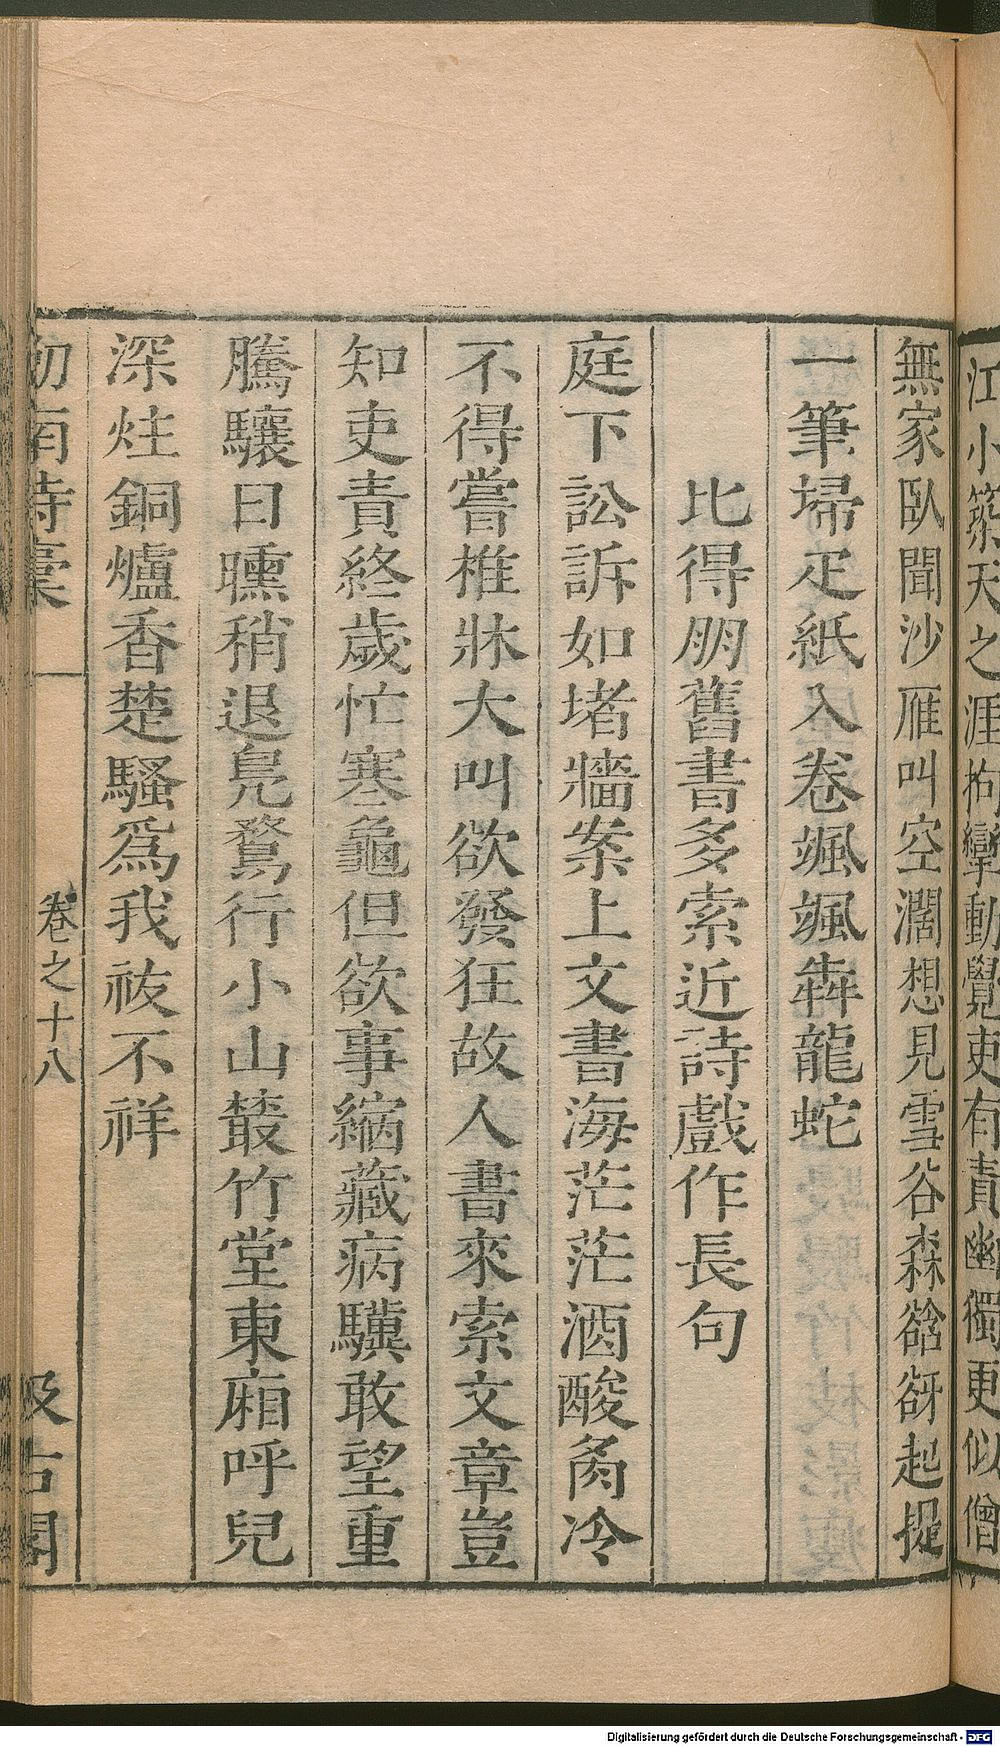 江小築天之涯拘攣動覺吏有責幽獨更似僧
無家臥聞沙雁叫空濶想見雪谷森谽谺起提
一筆埽疋紙入卷颯颯犇龍蛇
比得朋舊書多索近詩戲作長句
庭下訟訴如堵牆案上文書海茫茫酒酸胾冷
不得嘗椎牀大叫欲發狂故人書來索文章豈
知吏責終歲忙寒龜但欲事縮藏病驥敢望重
騰驤日曛稍退鳧鶩行小山叢竹堂東廂呼兒
深炷銅爐香楚騷爲我祓不祥
劒南詩稾
卷之十八
汲古閣
Digitalisierung gefördert durch die Deutsche Forschungsgemeinschaft - DFG